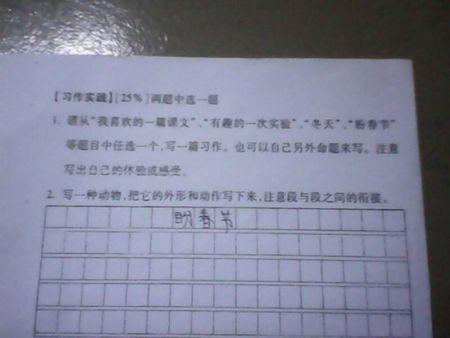 【习作实践】[25%]两题中选一题
1. 请从“我喜欢的一篇课文”、“有趣的一次实验”、“冬天”、“盼春节”
等题目中任选一个，写一篇习作。也可以自己另外命题来写。注意
写出自己的体验或感受。
2. 写一种动物，把它的外形和动作写下来，注意段与段之间的衔接。
盼春节